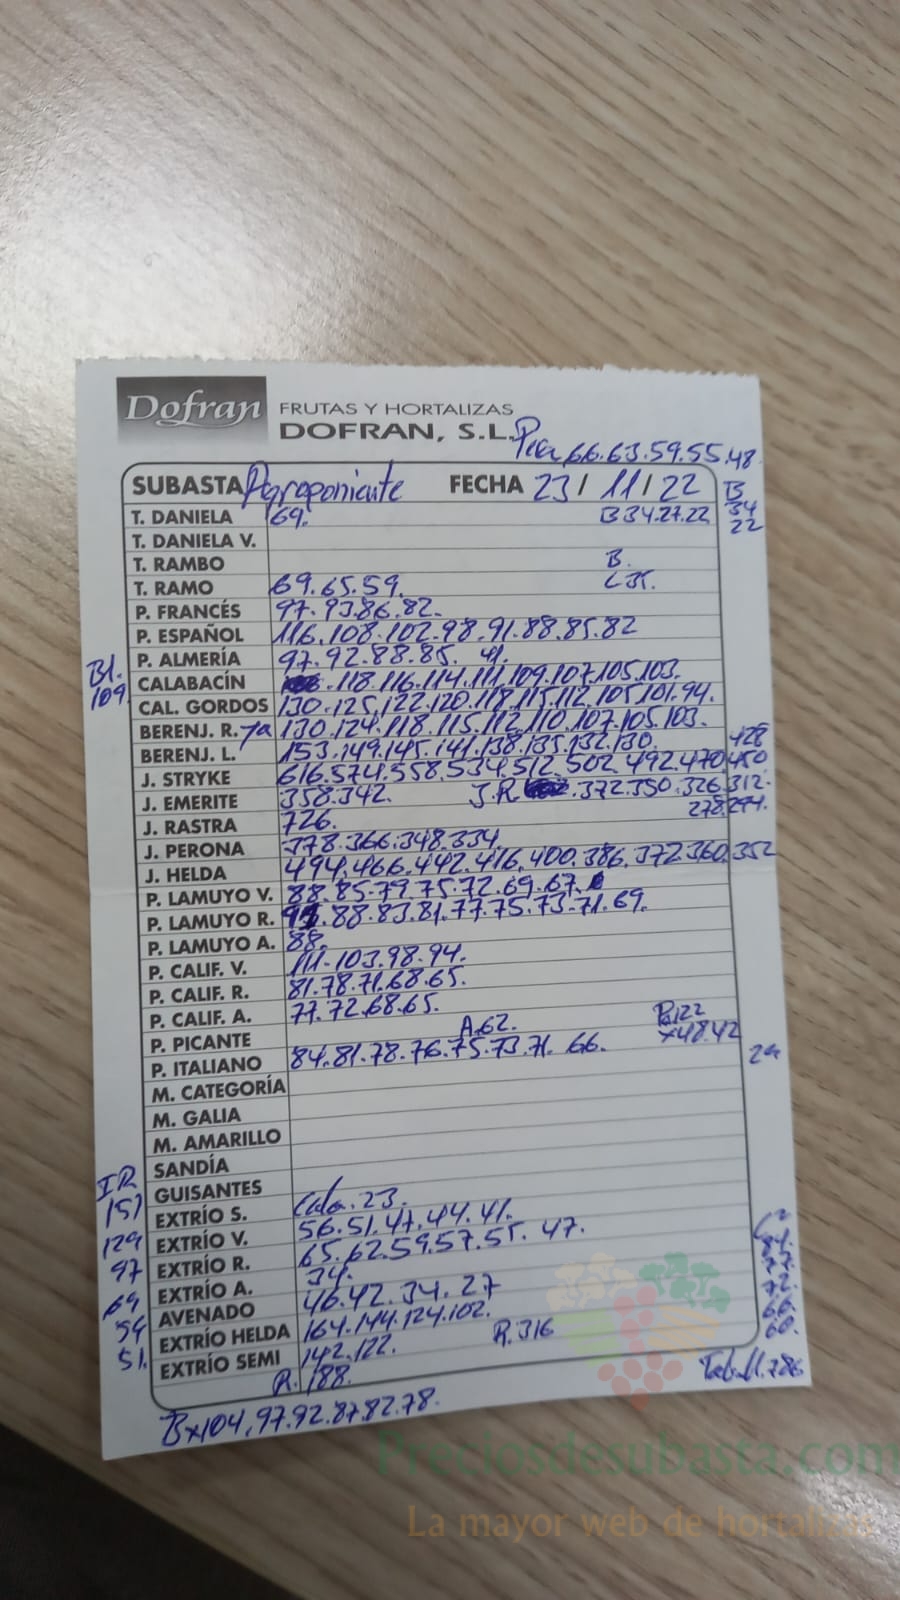 Dofran
FRUTAS Y HORTALIZAS
DOFRAN, S.L.
Pera 66.63.59.55.48.
SUBASTA Agroponiente FECHA 23/11/22
B
34
22
T. DANIELA 69. B 34.27.22
T. DANIELA V.
T. RAMBO B.
T. RAMO 69.65.59.
P. FRANCÉS 97.93.86.82.
P. ESPAÑOL 116.108.102.98.91.88.85.82
P. ALMERÍA 97.92.88.85. 41.
Bl.
109
CALABACÍN .118.116.114.111.109.107.105.103.
CAL. GORDOS 130.125.122.120.118.115.112.105.101.94.
BERENJ. R. 130.124.118.115.112.110.107.105.103.
BERENJ. L. 153.149.145.141.138.135.132.130.
J. STRYKE 616.574.558.534.512.502.492.470.450
428
J. EMERITE 358.342. J.R .372.350.326.312.
J. RASTRA 726.
278.294.
J. PERONA 378.366.348.334.
J. HELDA 494.466.442.416.400.386.372.360.352
P. LAMUYO V. 88.85.79.75.72.69.67.
P. LAMUYO R. .88.83.81.77.75.73.71.69.
P. LAMUYO A. 88.
P. CALIF. V. 111.103.98.94.
P. CALIF. R. 81.78.71.68.65.
P. CALIF. A. 77.72.68.65.
P. PICANTE A.62.
P. ITALIANO 84.81.78.76.75.73.71. 66. 48.42
M. CATEGORÍA
M. GALIA
M. AMARILLO
SANDÍA
GUISANTES
EXTRÍO S. Cala.23.
EXTRÍO V. 56.51.47.44.41.
EXTRÍO R. 65.62.59.57.55. 47.
EXTRÍO A. 34.
AVENADO 46.42.34.27
EXTRÍO HELDA 164.144.124.102.
EXTRÍO SEMI 142.122. R.316
R. 188.
151
129
97
69
54
51.
84.
77.
72.
66.
60.
Tab.11.786
Bx104.97.92.87.82.78.
Preciosdesubasta.com
La mayor web de hortalizas